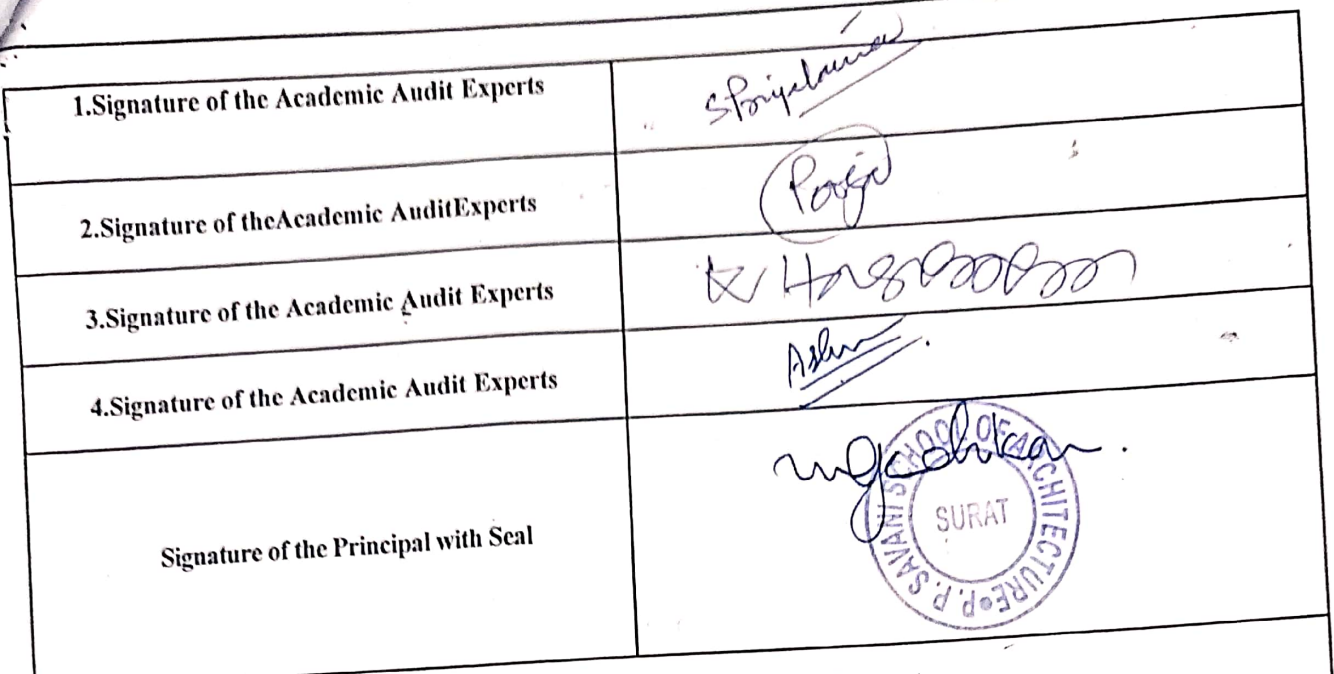 1.Signature of the Academic Audit Experts
2.Signature of theAcademic AuditExperts
Pooja
3.Signature of the Academic Audit Experts
4.Signature of the Academic Audit Experts
Signature of the Principal with Seal
P.P. SAVANI SCHOOL OF ARCHITECTURE
SURAT